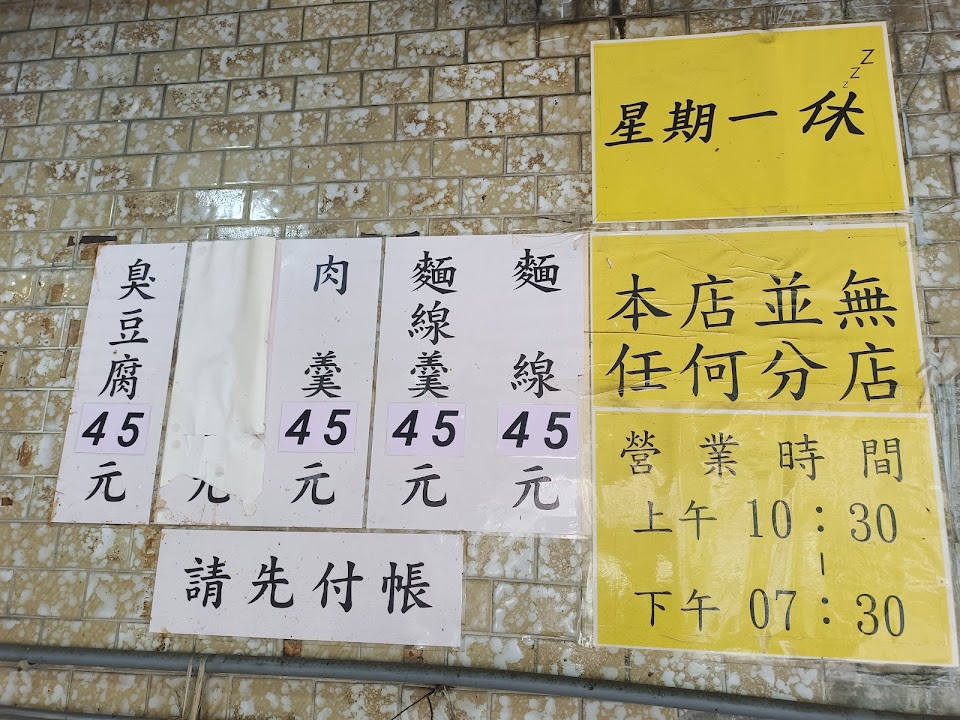 星期一休
zzz
本店並無
任何分店
營業時間
上午 10:30
|
下午 07:30
麵線
45
元
麵線羹
45
元
肉羹
45
元
元
臭豆腐
45
元
請先付帳